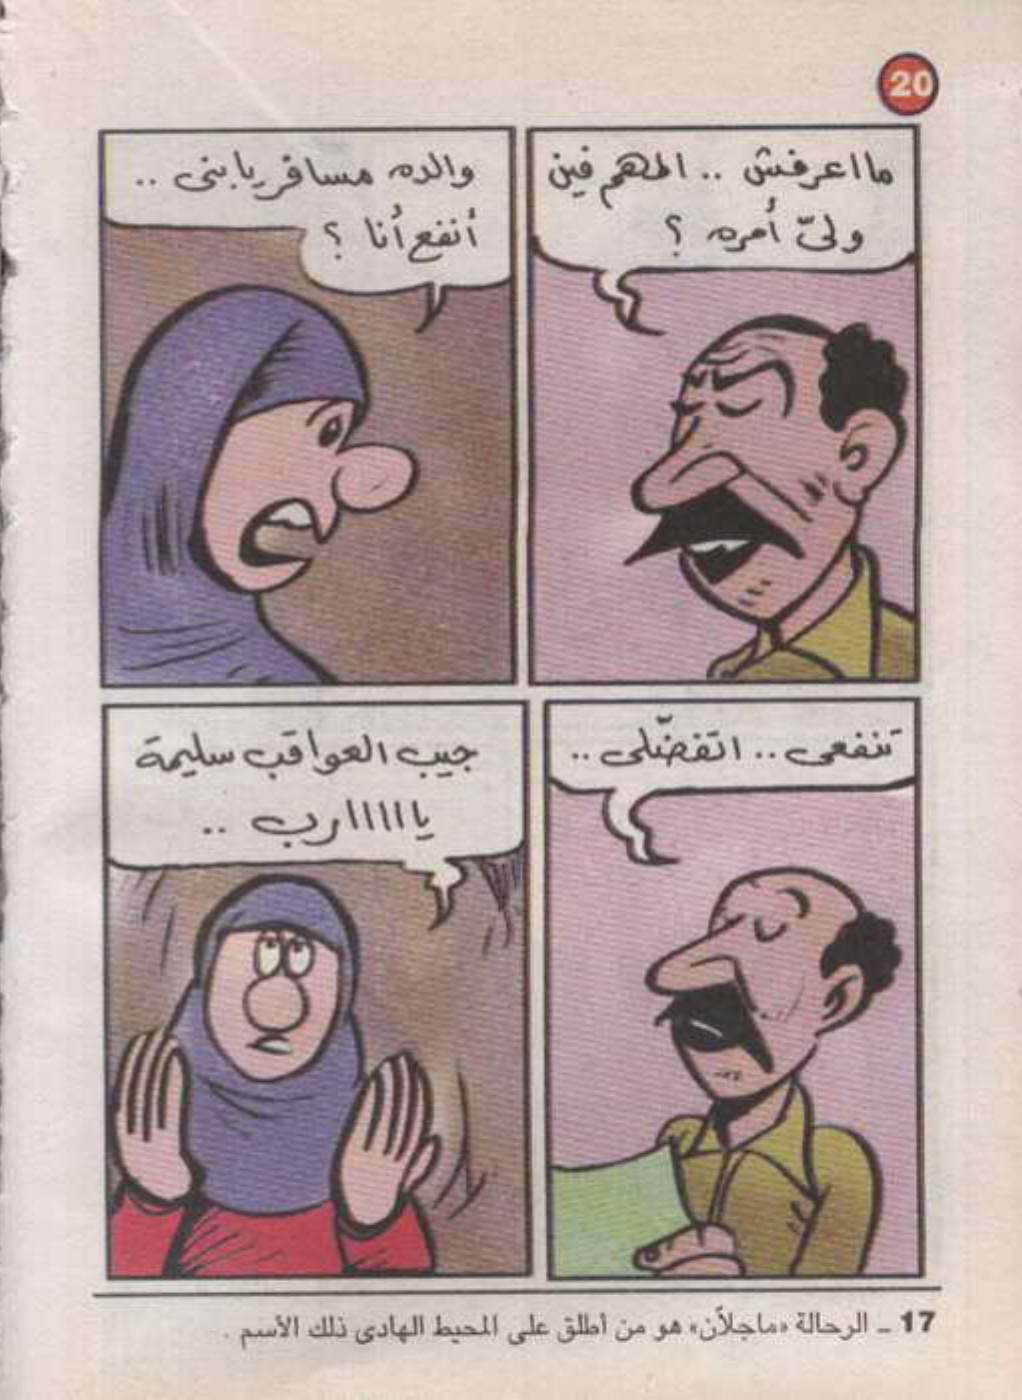 20
مااعرفش .. المهم فين
ولىّ أمره ؟
والده مسافر يابنى ..
أنفع أنا ؟
تنفعى .. اتفضّلى ..
جيب العواقب سليمة
يااااارب ..
17 ــ الرحالة «ماجلاّن» هو من أطلق على المحيط الهادى ذلك الأسم .